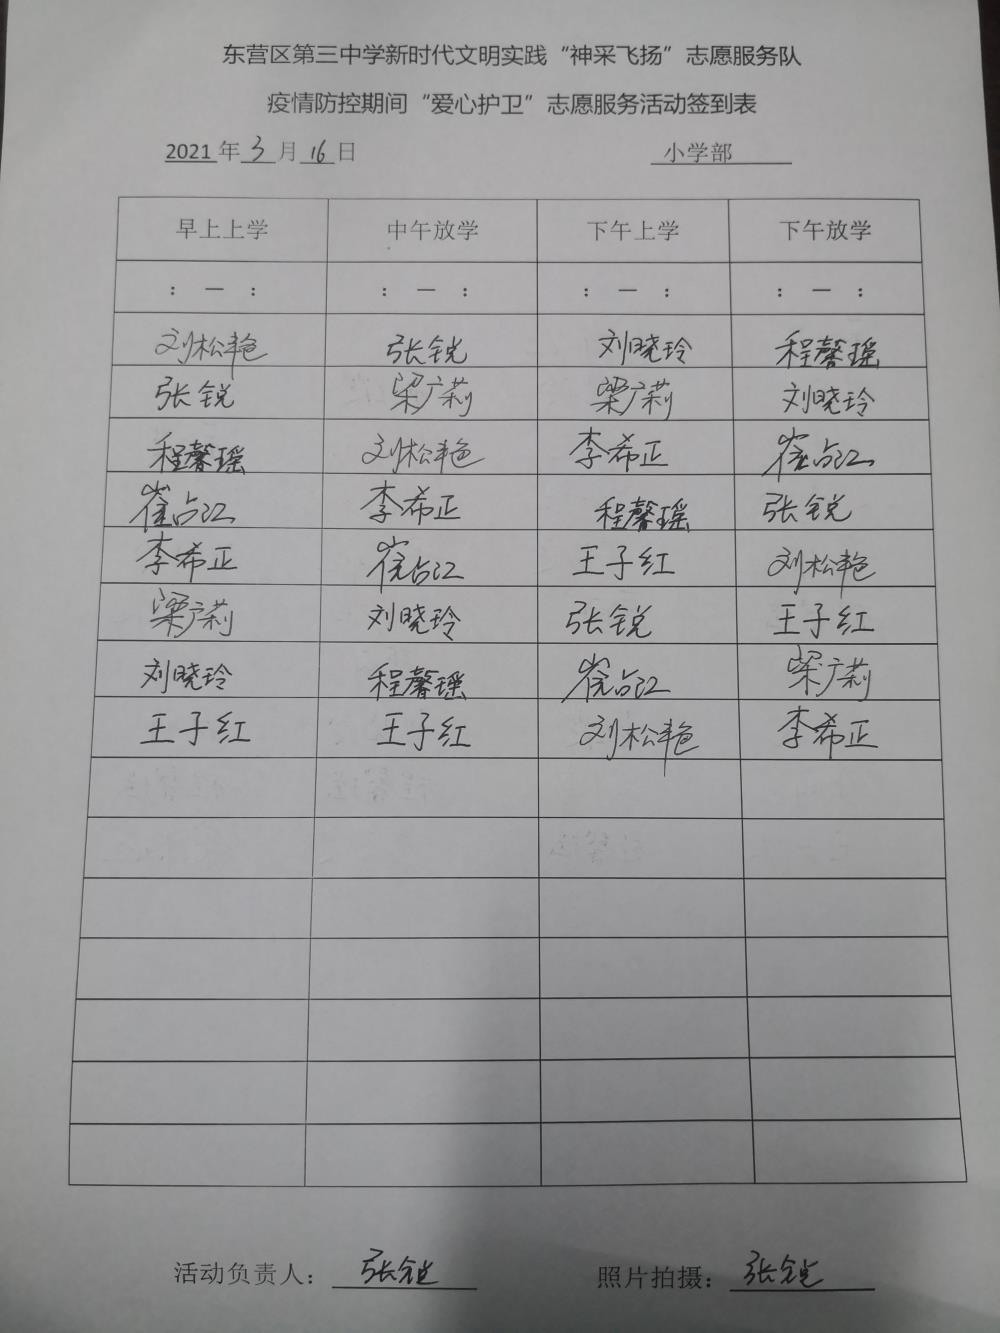 东营区第三中学新时代文明实践“神采飞扬”志愿服务队
疫情防控期间“爱心护卫”志愿服务活动签到表
2021 年 3 月 16 日 小学部
早上上学 中午放学 下午上学 下午放学
： — ： ： — ： ： — ： ： — ：
刘松艳 张锐 刘晓玲 程馨瑶
张锐 梁广莉 梁广莉 刘晓玲
程馨瑶 刘松艳 李希正 崔占江
崔占江 李希正 程馨瑶 张锐
李希正 崔占江 王子红 刘松艳
梁广莉 刘晓玲 张锐 王子红
刘晓玲 程馨瑶 崔占江 梁广莉
王子红 王子红 刘松艳 李希正
活动负责人： 张锐 照片拍摄： 张锐